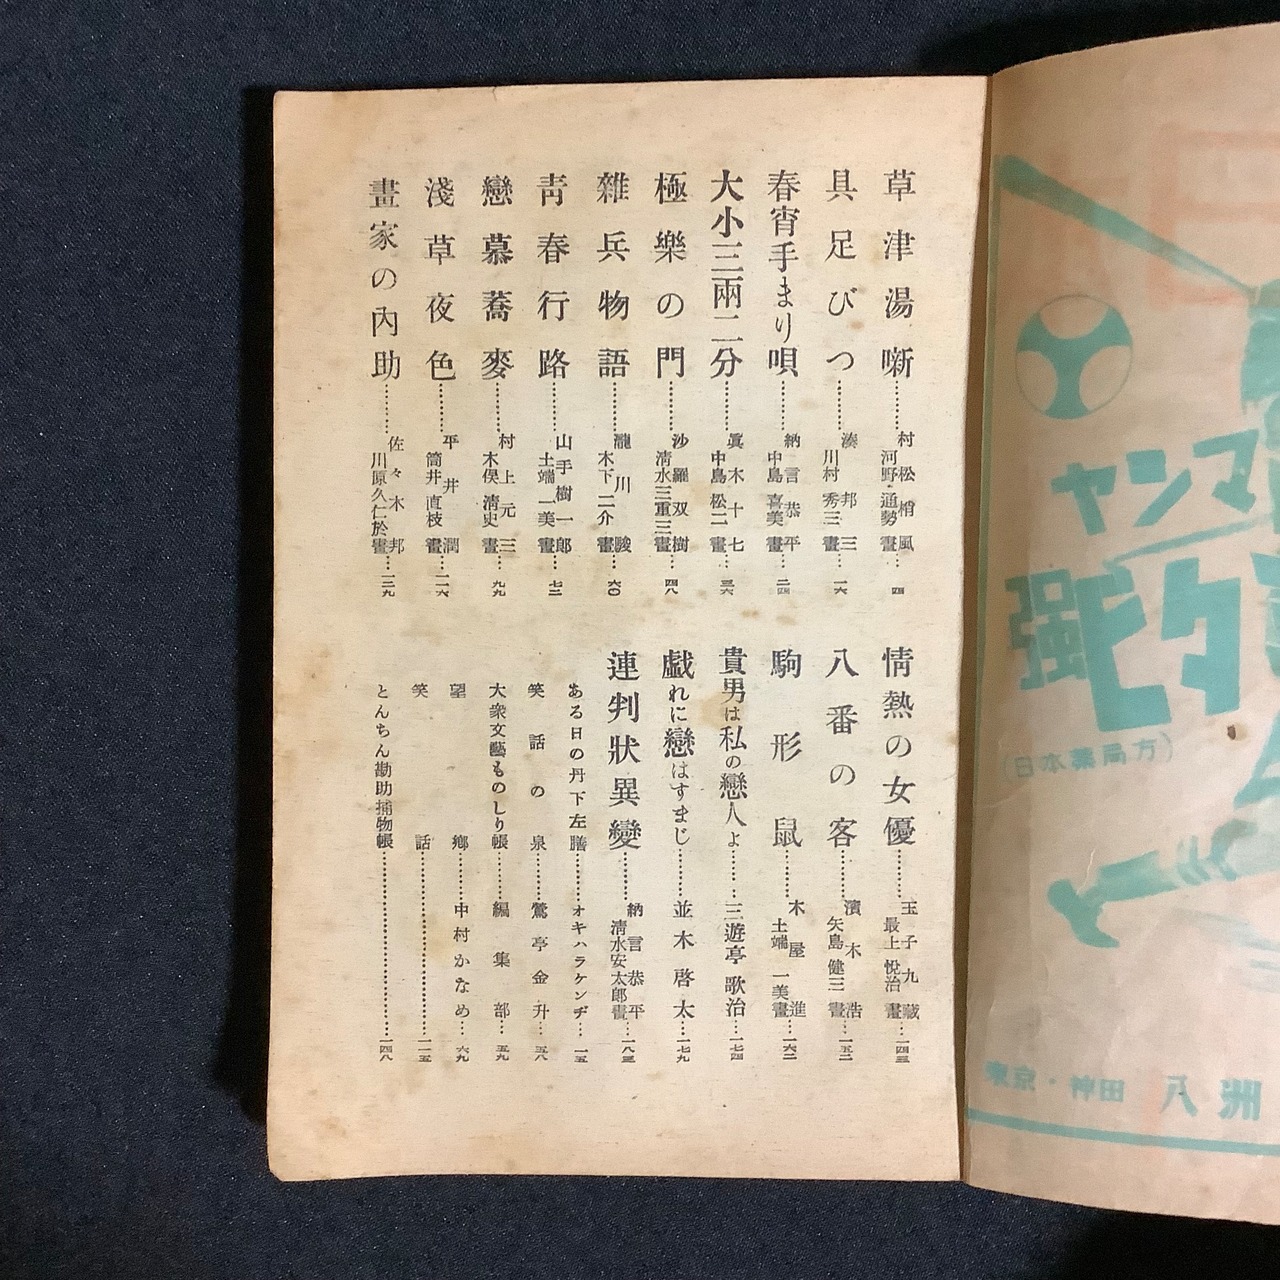 草津湯噺………村松梢風 河野・通勢畫…四
具足びつ………湊邦三 川村秀三畫…一六
春宵手まり唄………納言恭平 中島喜美畫…二四
大小三兩二分………眞木十七 中島松二畫…三六
極樂の門………沙羅双樹 清水三重三畫…四八
雜兵物語………瀧川駿 木下二介畫…六〇
靑春行路………山手樹一郎 土端一美畫…七二
戀慕蕎麥………村上元三 木俣清史畫…九九
淺草夜色………平井潤 筒井直枝畫…一一六
畫家の內助………佐々木邦 川原久仁於畫…一二九
情熱の女優………玉子九藏 最上悦治畫…一四三
八番の客………濱木浩 矢島健三畫…一五二
駒形鼠………木屋進 土端一美畫…一六二
貴男は私の戀人よ………三遊亭歌治…一七四
戯れに戀はすまじ………並木啓太…一七九
連判狀異變………納言恭平 清水安太郎畫…一八三
ある日の丹下左膳………オキハラケンヂ…一五
笑話の泉………鶯亭金升…五八
大衆文藝ものしり帳………編集部…五九
望鄕………中村かなめ…六九
笑話………一一五
とんちん勘助捕物帳………一四八
ヤンマ
強ヒタ
(日本藥局方)
東京・神田 八洲